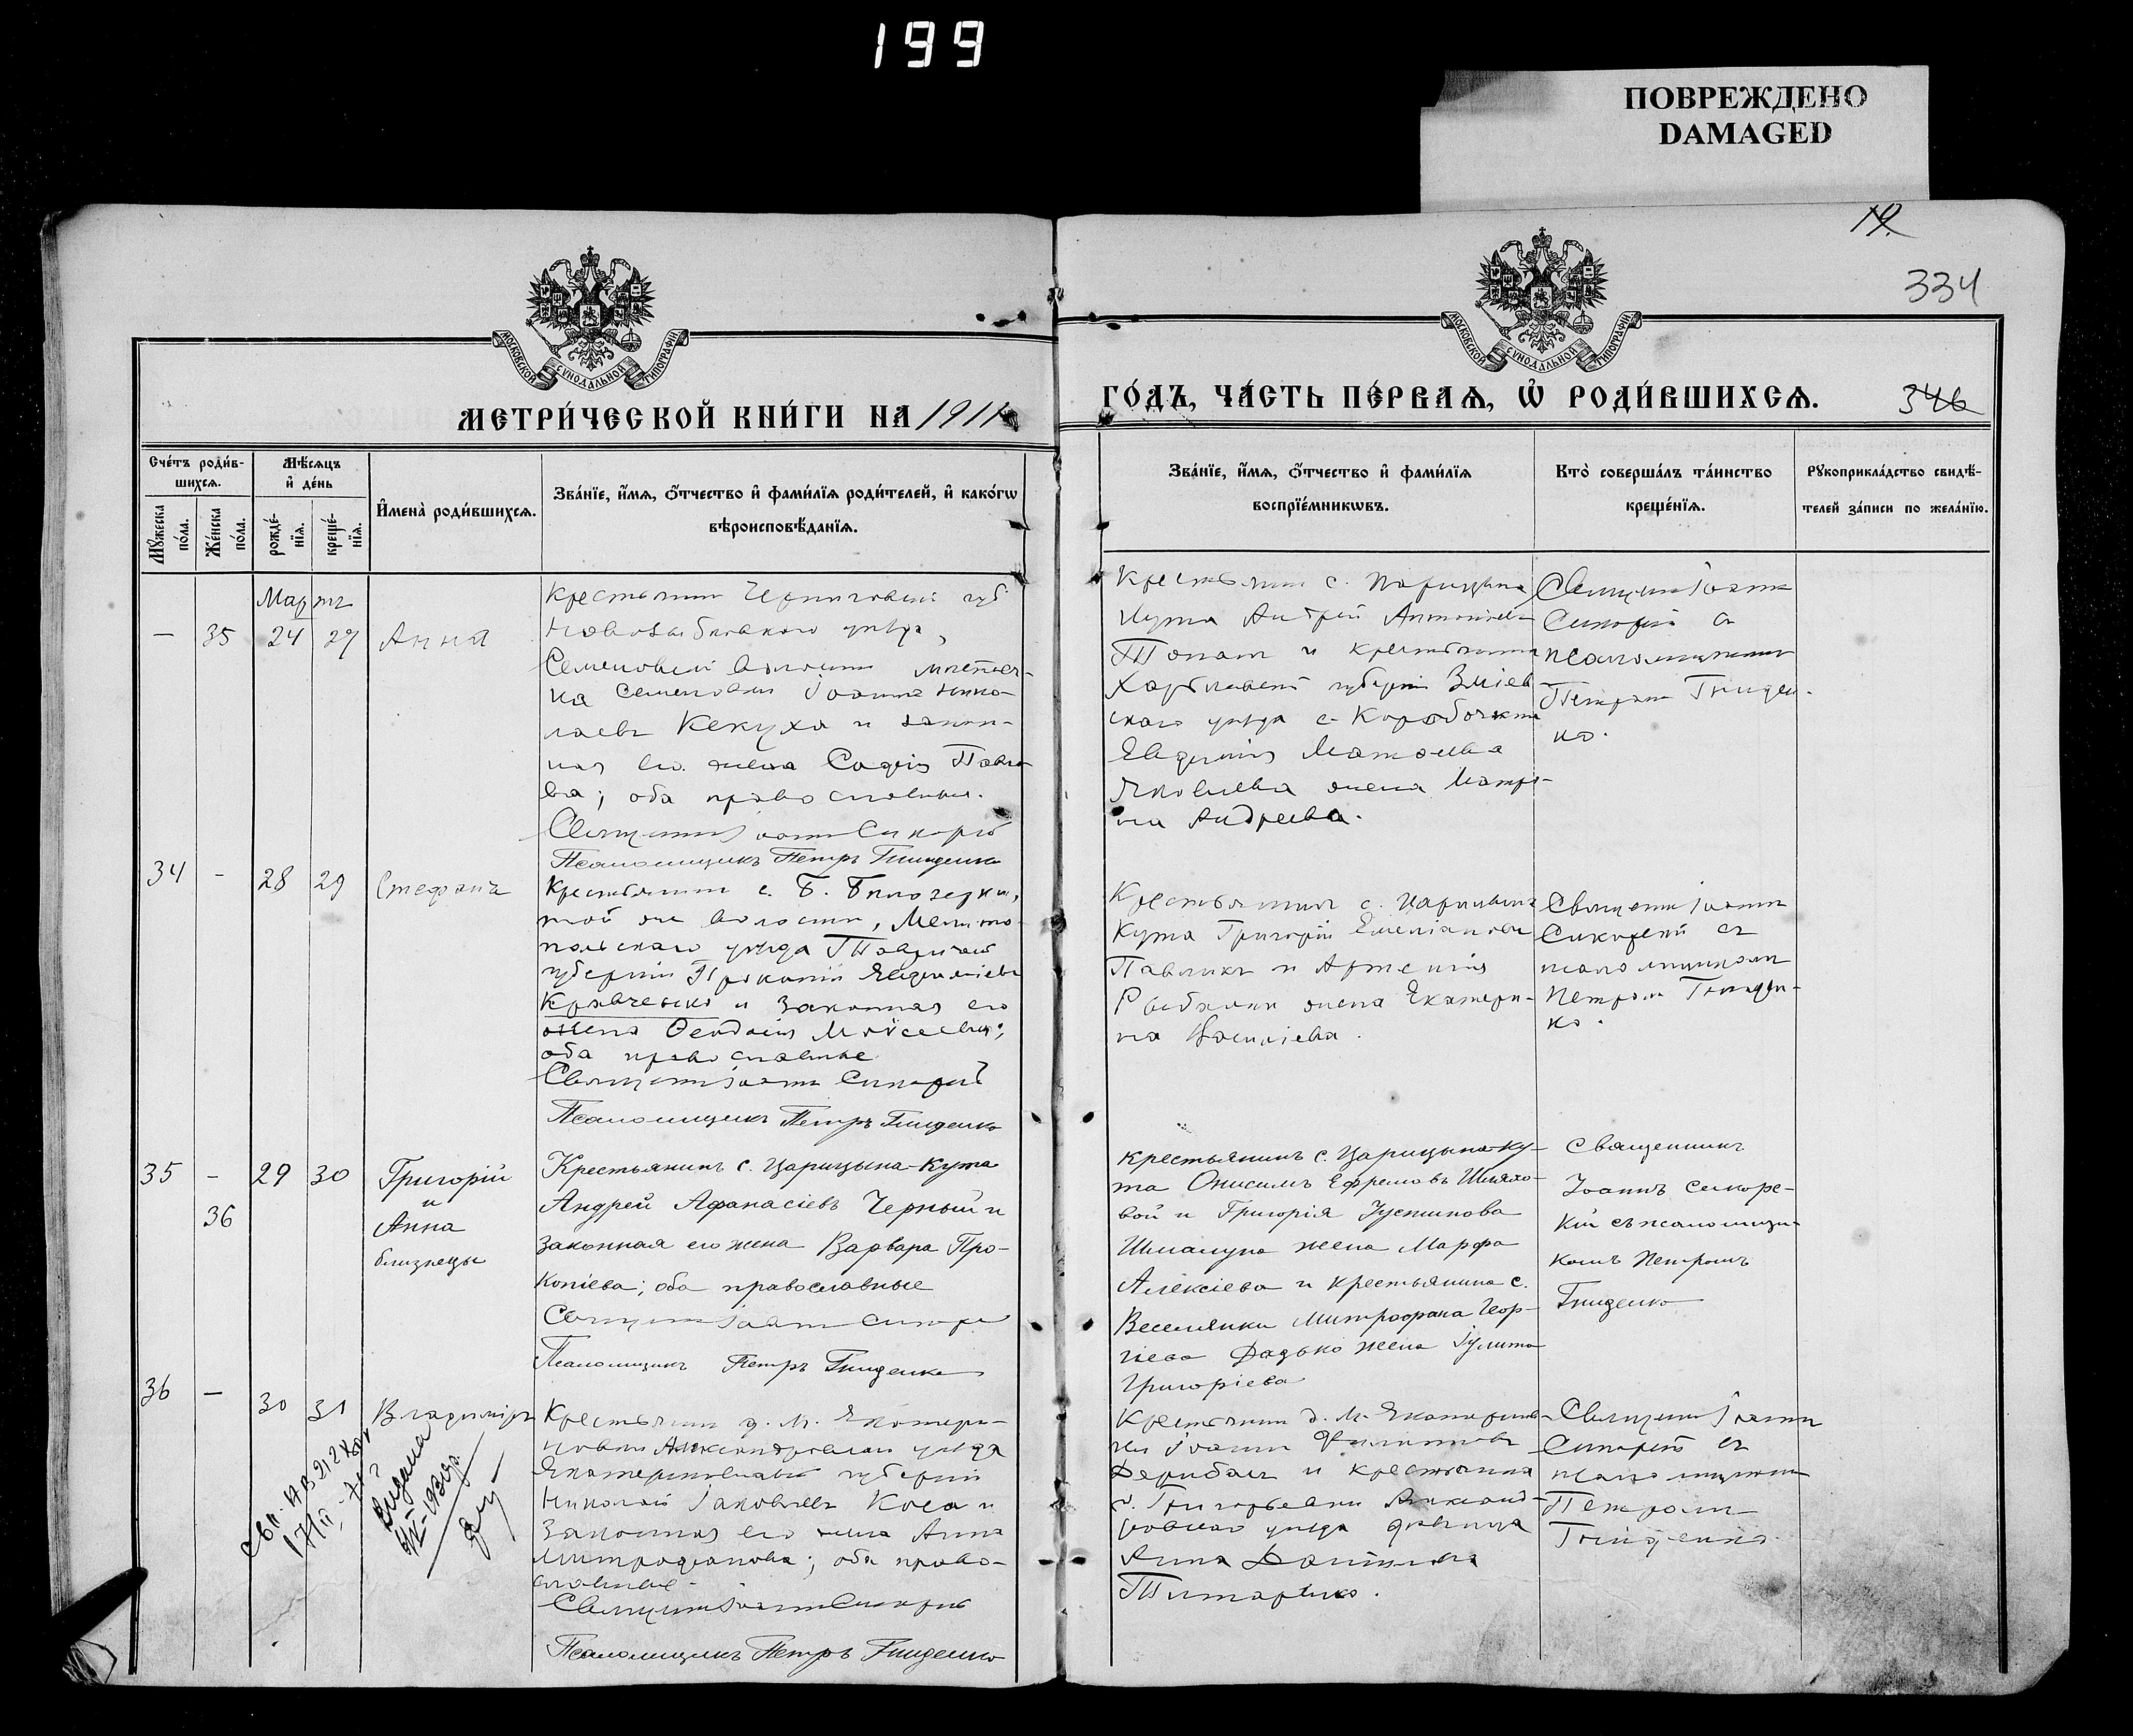 199
ПОВРЕЖДЕНО
DAMAGED
19.
334
МОСКОВСКОЙ СУНОДАЛЬНОЙ ТИПОГРАФІИ
МОСКОВСКОЙ СУНОДАЛЬНОЙ ТИПОГРАФІИ
МЕТРИ́ЧЕСКОЙ КНИ́ГИ НА 1911
ГО́ДЪ, ЧА́СТЬ ПЕ́РВАѦ, Ѡ҆ РОДИ́ВШИХСѦ.
346
Сче́тъ роди́в-
шихсѧ.
Мꙋ́жеска по́ла.
Же́нска по́ла.
Мѣ́сѧцъ
и҆ де́нь
рожде́-
нїѧ.
креще́-
нїѧ.
И҆мена̀ роди́вшихсѧ.
Зва́нїе, и҆́мѧ, ѻ҆́тчество и҆ фами́лїѧ роди́телей, и҆ како́гѡ
вѣроисповѣ́данїѧ.
Зва́нїе, и҆́мѧ, ѻ҆́тчество и҆ фами́лїѧ
воспрїе́мникѡвъ.
Кто̀ соверша́лъ та́инство
креще́нїѧ.
Рꙋкоприкла́дство свидѣ́-
телей за́писи по жела́нїю.
Мартъ
— 35 24 29 Анна
Крестьянин Черниговской губ
Новозыбковского уезда,
Семеновской волости местеч-
ка Семеновки Іоанна Нико-
лаевъ Кекуха и закон-
ная его жена Софія Павло-
ва; оба православные.
Священник Іоанн Сикорскій
Псаломщикъ Петръ Гниденко
Крестьянин с. Царицына
Кута Андрей Антоніев
Топал и крестьянина
Харьковской губерніи Зміев
ского уезда с. Коробочкина
Яковлева жена Матро-
на Андреева.
Священник Іоанн
Сикорскій съ
псаломщиком
Петром Гниден-
ко.
34 - 28 29 Стефанъ
Крестьянин с. Б. Белозерки,
той же волости, Мелито-
польского уезда Таврической
губерніи Прокопій Евдокіевъ
Кравченко и законная его
жена Ѳеодосія Моѵсеева;
оба православные
Священник Іоанн Сикорскій
Псаломщикъ Петръ Гниденко
Крестьянин с. Царицына
Кута Григорій Емеліанов
Павлик и Артемія
Рыбалки жена Екатери-
на Василіева.
Священник Іоанн
Сикорскій съ
псаломщиком
Петром Гниден-
ко.
35 - 29 30 Григорій
и
36 Анна
близнецы
Крестьянинъ с. Царицына-Кута
Андрей Афанасіевъ Черный и
законная его жена Варвара Про-
копіева; оба православные
Священник Іоанн Сикорскій
Псаломщикъ Петръ Гниденко
Крестьянинъ с. Царицына-Ку-
та Онисимъ Ефремовъ Шляхо-
вой и Григорія Іустинова
Шмалуна жена Марфа
Алексіева и крестьянина с.
Веселянки Митрофана Геор-
гіева Дадько жена Іулита
Григоріева
Священникъ
Іоаннъ Сикорс-
кій съ псаломщи-
комъ Петромъ
Гниденко
36 — 30 31 Владиміръ
Крестьянин д. М. Екатери-
новки Александровского уезда
Екатеринославской губерніи
Николай Іаковлевъ Коса и
законная его жена Анна
Митрофанова; оба право-
славные.
Священник Іоанн Сикорскій
Псаломщикъ Петръ Гниденко
Крестьянин д. М. Екатеринов-
ки Іоанн Филиппов
Дерибас и крестьянина
д. Григорьевки Александ-
ровского уезда девица
Анна Даніилова
Титаренко.
Священник Іоанн
Сикорскій съ
псаломщиком
Петром
Гниденко.
Видана